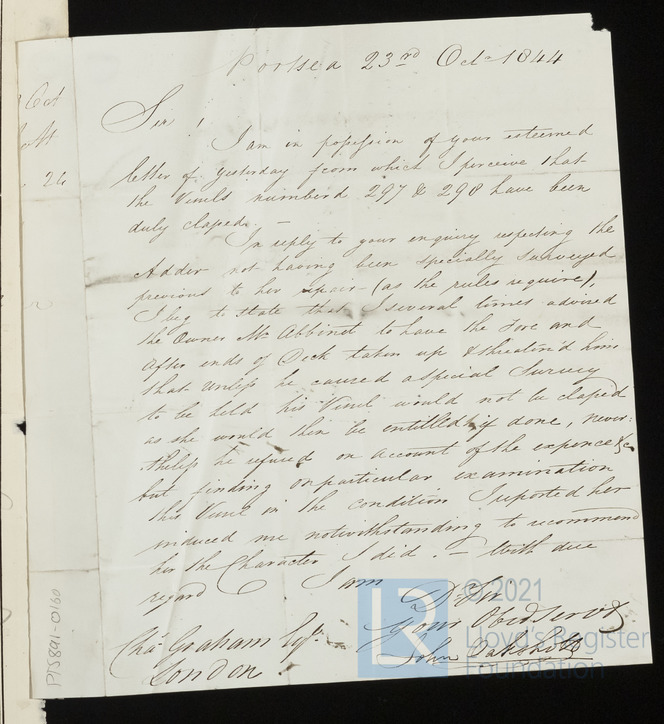 Portsea 23rd Octr 1844
Sir!
I am in possession of your esteemed
letter of yesterday from which I perceive that
the Vessels numberd 297 & 298 have been
duly classed. —
In reply to your enquiry respecting the
Adder not having been specially surveyed
previous to her repair (as the rules require),
I beg to state that I several times advised
the Owner Mr Abbinet to have the Fore and
After ends of Deck taken up & threatin'd him
that unless he caused a special Survey
to be held his Vessel would not be classed
as she would then be entitled if done, never:
theless he refused on account of the expence &c
but finding on particular examination
this Vessel in the condition I reported her
induced me notwithstanding to recommend
her the Character I did. — With due
regard I am
Dr Sir
Your Obedt Servt
John
Chas Graham Esqr
London
Oct
26
PTS891-0160
LR
© 2021
Lloyd's Register
Foundation